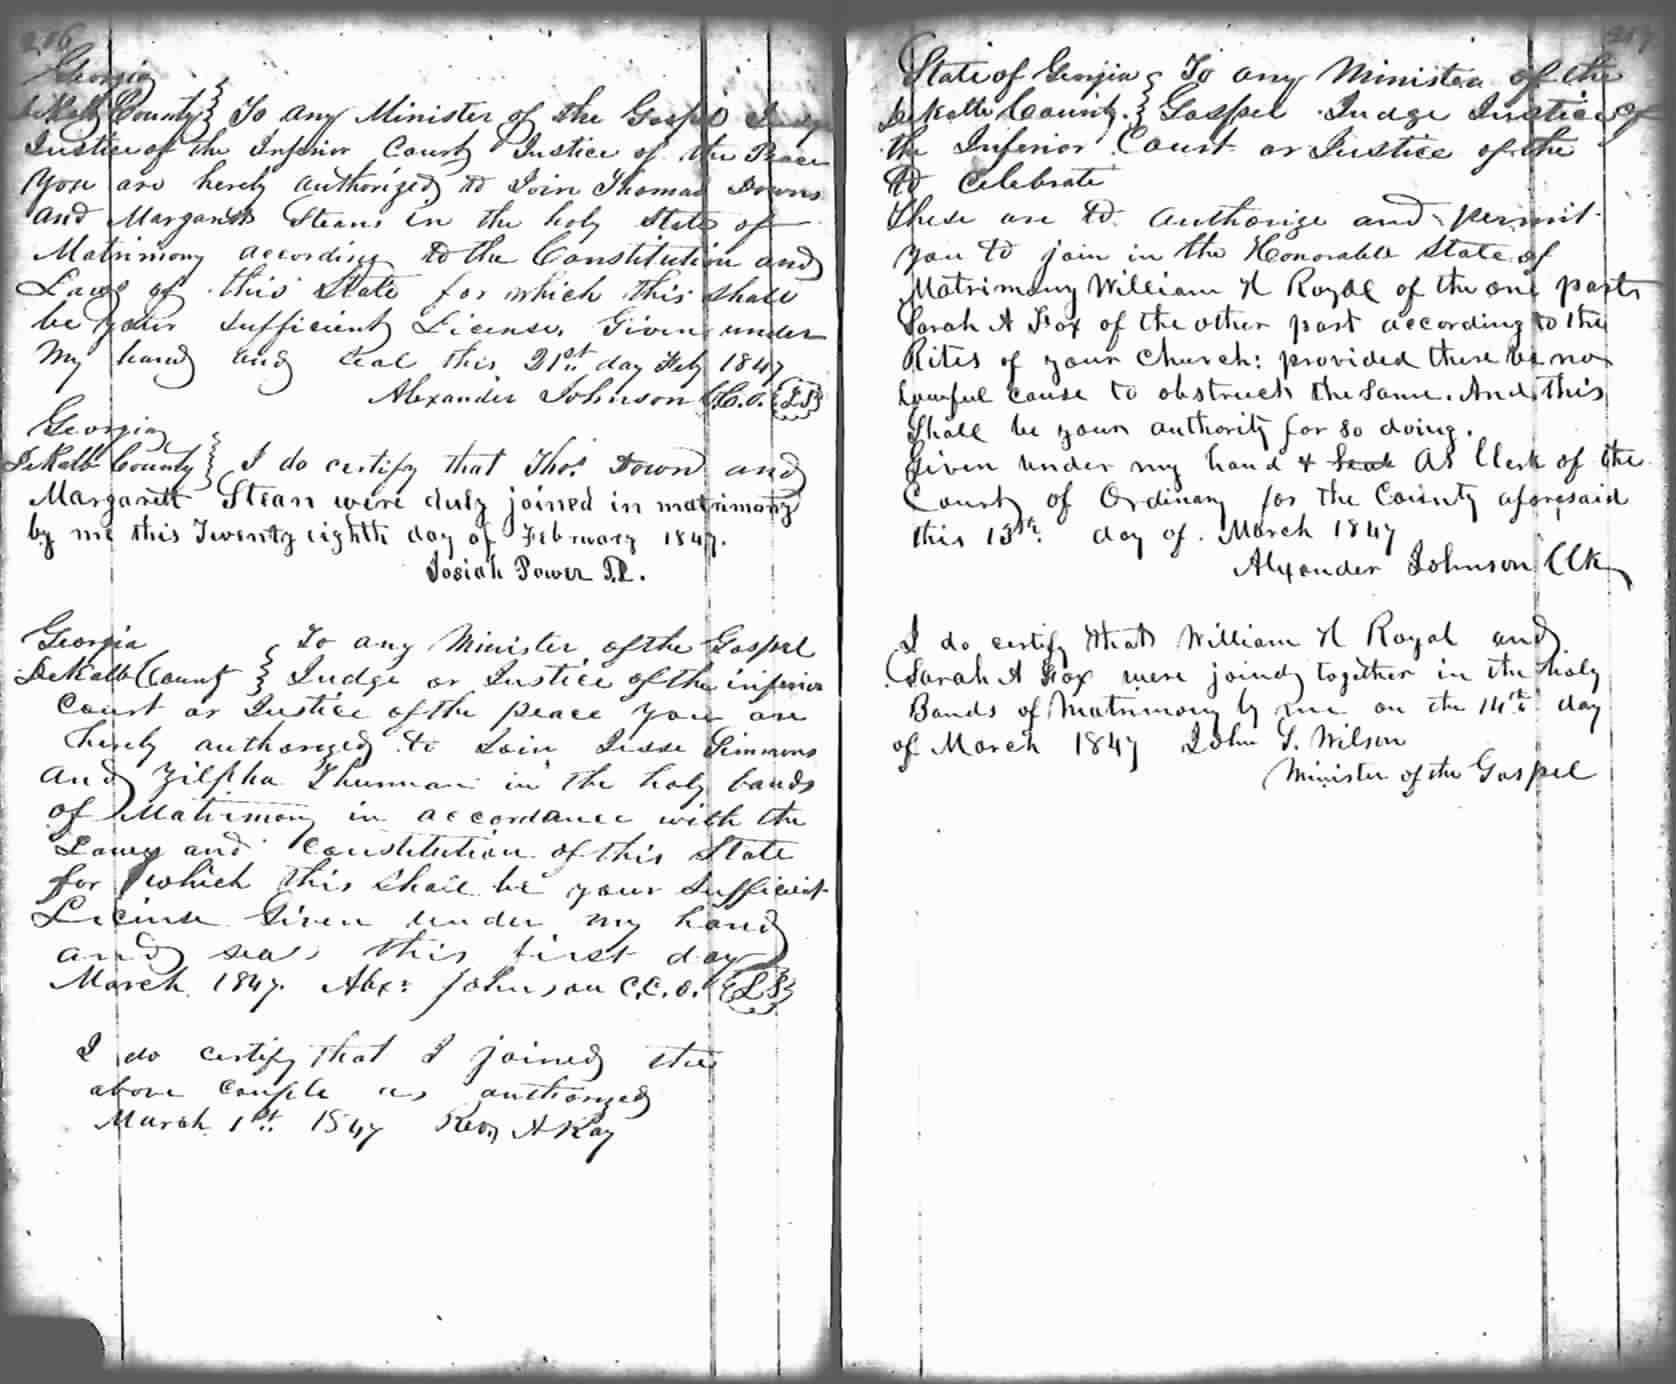 216
Georgia
DeKalb County } To any Minister of the Gospel Judge
Justice of the Inferior Court Justice of the Peace
You are herely authorized to Join Thomas Downs
and Margarett Steans in the holy State of
Matrimony according to the Constitution and
Laws of this State for which this shall
be your sufficient License. Given under
my hand and seal this 21st day Feby 1847
Alexander Johnson C.C.O. {LS}
Georgia
DeKalb County } I do certify that Thos. Down and
Margarett Stean were duly joined in matrimony
by me this Twenty eighth day of February 1847.
Josiah Power J.P.
Georgia } To any Minister of the Gospel
DeKalb County } Judge or Justice of the inferior
Court or Justice of the peace You are
hereby authorized to Join Jesse Simmons
and Zilpha Thurman in the holy bands
of Matrimony in accordance with the
Laws and Constitution of this State
for which this shall be your sufficient
License Given under my hand
and seal this first day
March 1847. Alex: Johnson C.C.O. {LS}
I do certify that I joined the
above couple as authorized
March 1st 1847 Revd A Kay
217
State of Georgia } To any Minister of the
DeKalb County. } Gospel Judge Justice of
the Inferior Court or Justice of the
to celebrate
These are to authorize and permit
you to join in the Honorable State of
Matrimony William H Royal of the one part
Sarah A Fox of the other part according to the
Rites of your Church: provided there be no
lawful cause to obstruct the same. And this
Shall be your authority for so doing.
Given under my hand & Seal As Clerk of the
Court of Ordinary for the County aforesaid
this 13th day of March 1847
Alexander Johnson Clk
I do certify that William H Royal and
Sarah A Fox were joind together in the holy
Bands of Matrimony by me on the 14th day
of March 1847 John S. Wilson
Minister of the Gospel